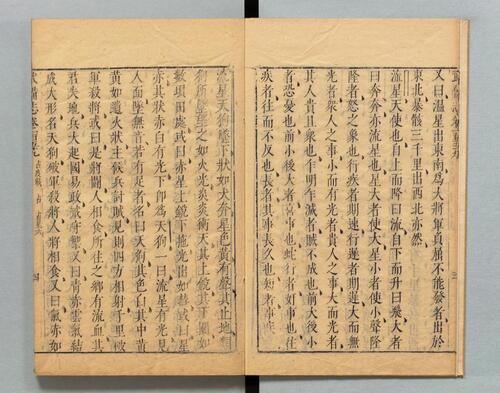 又曰溫星出東南為大將軍負屈不能發者出於
東北暴骸三千里出西北亦然
流星天使也自上而降曰流自下而升曰飛大者
曰奔奔亦流星也星大者使大星小者使小聲隆
隆者怒之象也行疾者期速行遲者期遲大而無
光者衆人之事小而有光者貴人之事大而光者
其人貴且衆也乍明乍滅者賊不成也前大後小
者恐憂也前小後大者喜事也蛇行者姦事也往
疾者往而不反也長者其事長久也短者事疾
流星天狗墜下狀如犬奔星色黃有聲其止地類
狗所墜望之如火光炎炎衝天其上銳其下圓如
數頃田處或曰赤星上銳下
亦其狀赤白有光下即為天狗一曰流星有光見
人面墜無音若有足者名曰天狗其色白其中黃
黃如遺火狀主候兵討賊見則四方相射千里破
軍殺將或曰是將鬪人相食所往之鄉有流血其
君失地兵大起國易政戒守禦又曰
成大形名天狗破軍殺將人將相食又曰氣赤如